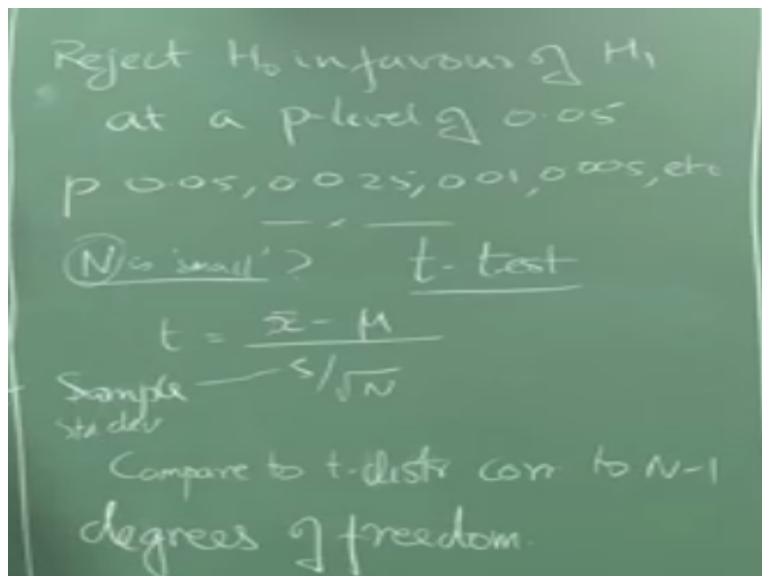 Reject H₀ in favour of H₁
at a p-level of 0.05
p 0.05, 0.025, 0.01, 0.005, etc
N is 'small'? t-test
t = x̄ - μ
s/√N
Sample
std dev
Compare to t-distr corr to N-1
degrees of freedom.